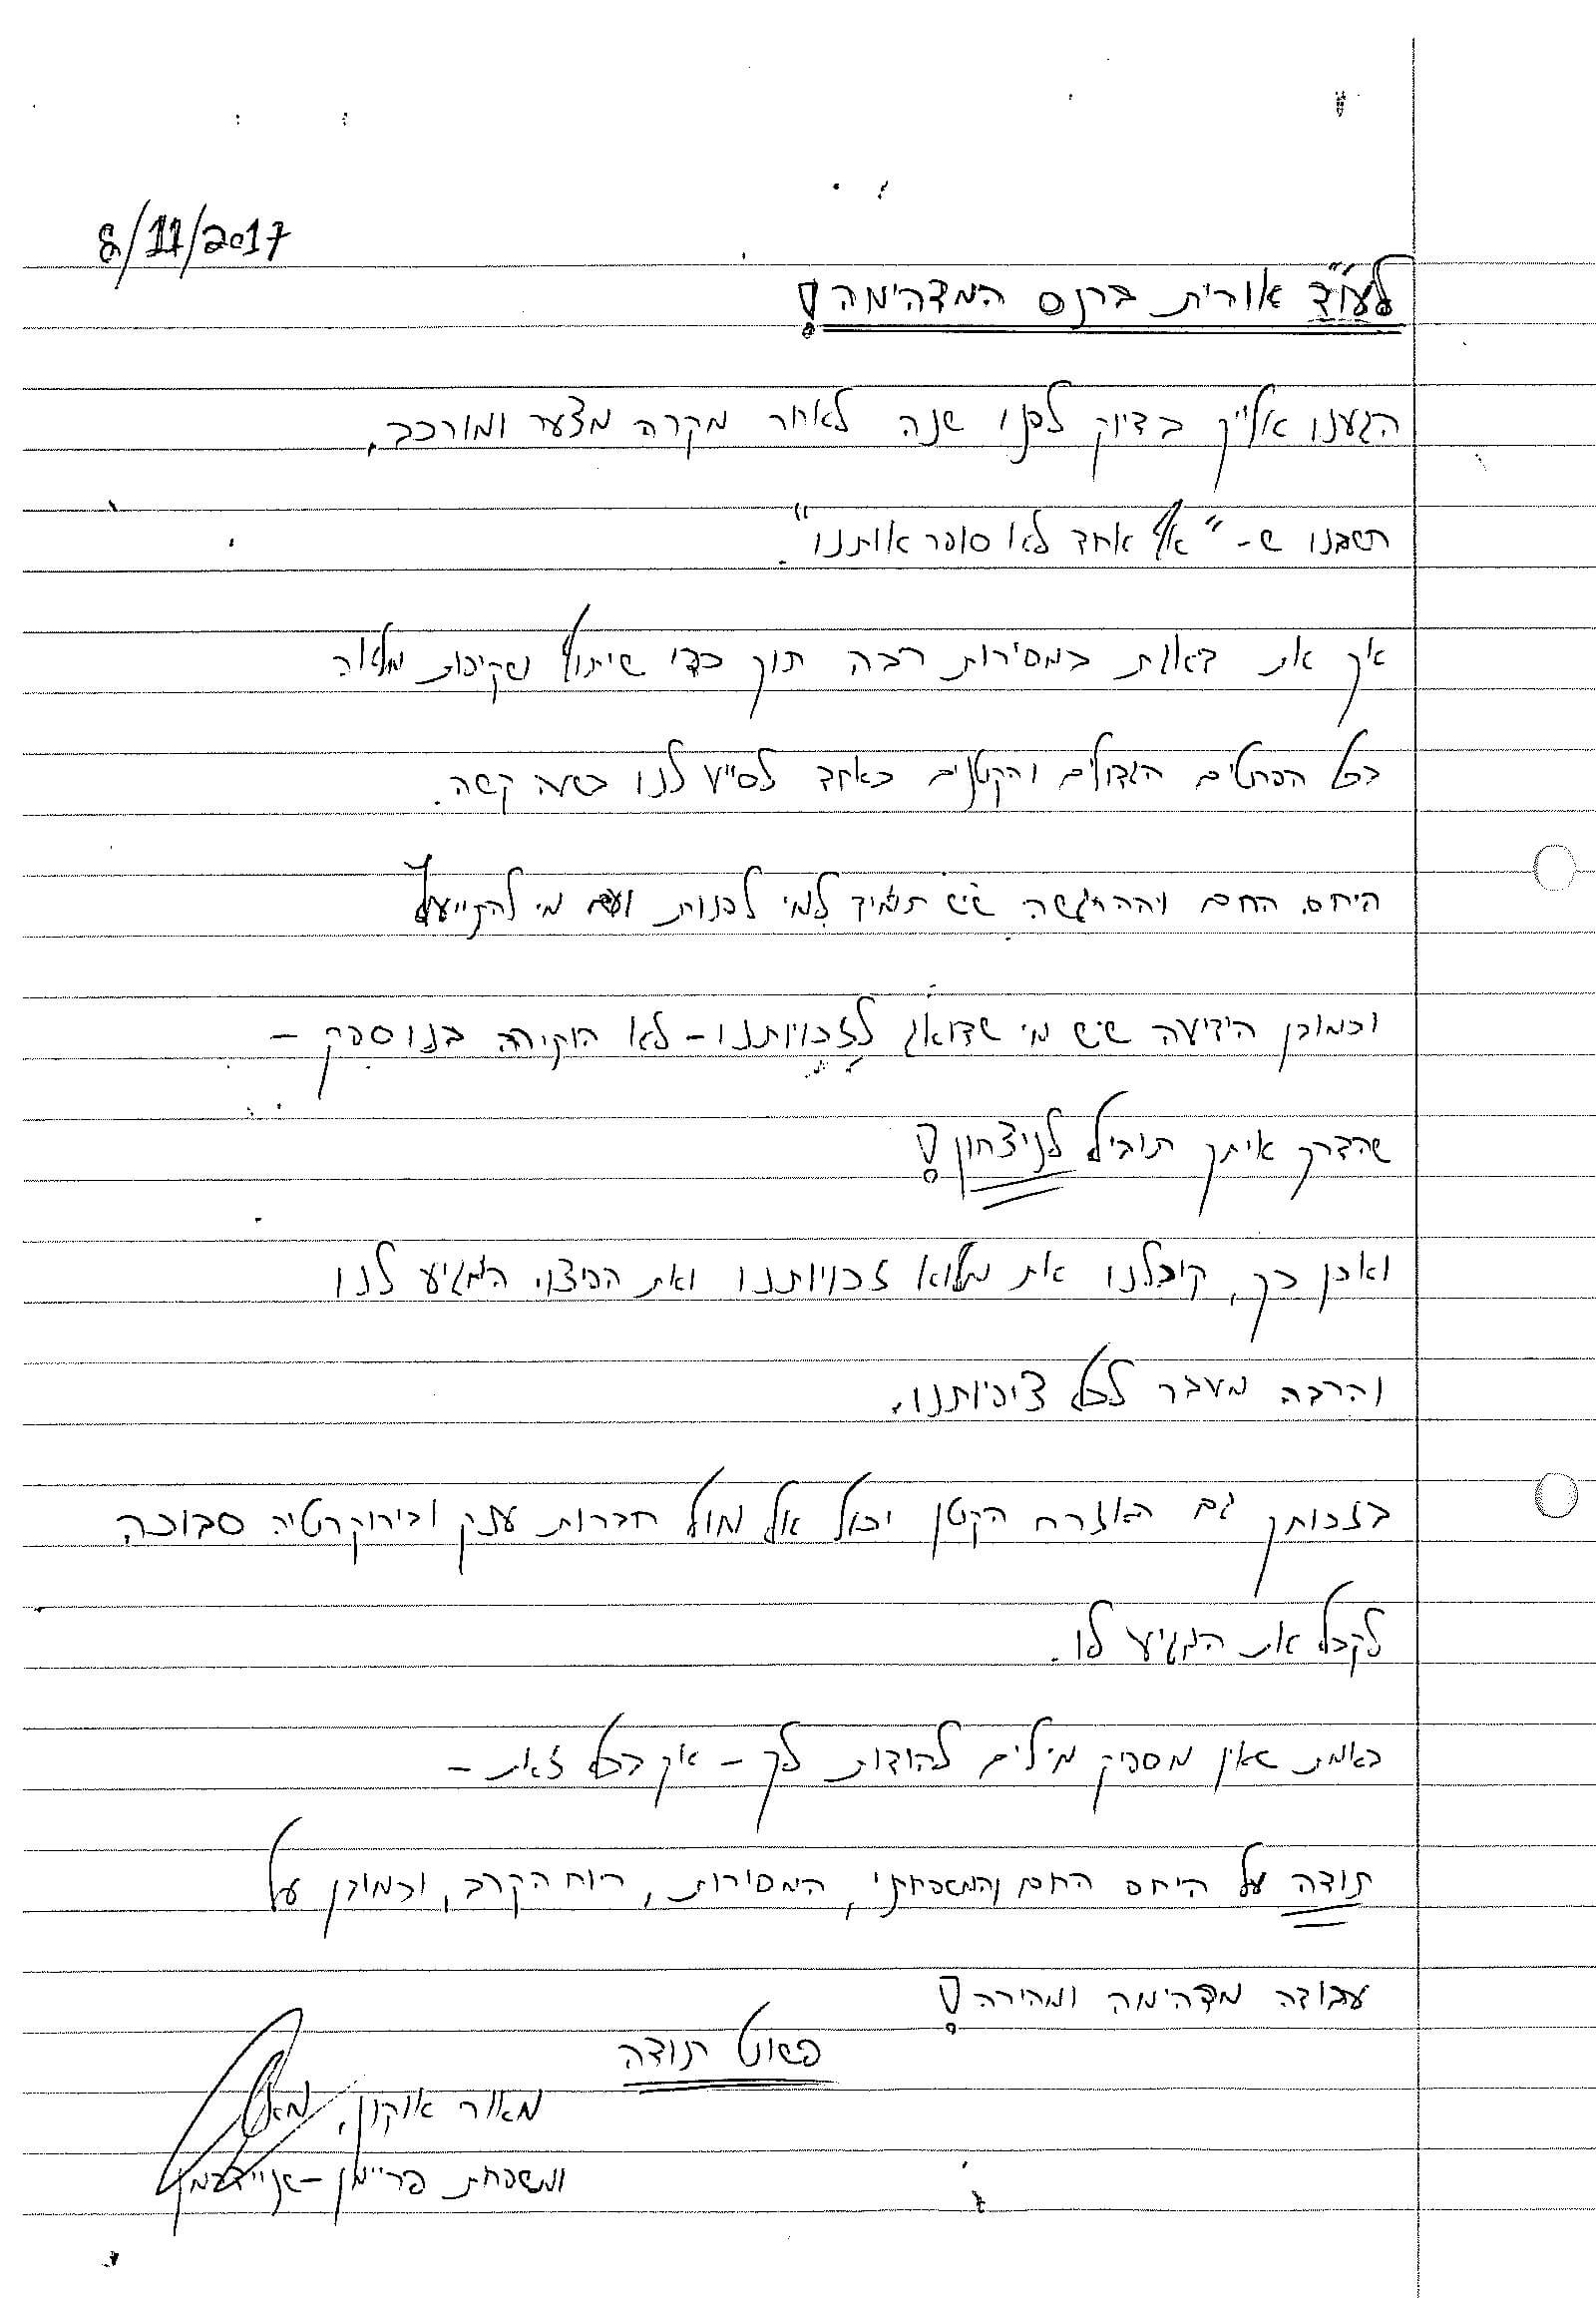 8/11/2017
לעו"ד אורית ברנס המדהימה!
הגענו אלייך בדיוק לפני שנה לאחר מקרה מצער ומורכב.
חשבנו ש- "אף אחד לא סופר אותנו".
אך את דאגת במסירות רבה תוך כדי שיתוף ושקיפות מלאה
בכל הפרטים הגדולים והקטנים כאחד לסייע לנו בשעה קשה.
היחס החם וההרגשה שיש תמיד למי לפנות ועם מי להתייעץ
וכמובן הידיעה שיש מי שדואג לזכויותנו - לא הותירה בנו ספק -
שהדרך איתך תוביל לניצחון!
ואכן כך, קיבלנו את מלוא זכויותנו ואת הפיצוי המגיע לנו
והרבה מעבר לכל ציפיותנו.
בזכותך גם האזרח הקטן יכול אל מול חברות ענק ובירוקרטיה סבוכה
לקבל את המגיע לו.
באמת שאין מספיק מילים להודות לך - אך בכל זאת -
תודה על היחס החם והמשפחתי, המסירות, רוח הקרב, וכמובן על
עבודה מדהימה ומהירה!
פשוט תודה
מאור אוקון,
ומשפחת פריימן - שניידרמן